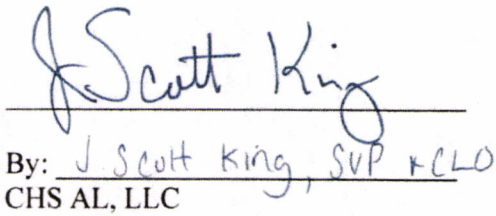 J. Scott King
By: J. Scott King, SVP & CLO
CHS AL, LLC